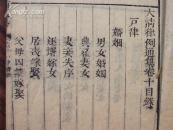 大清律例通纂卷十目錄
戶律
婚姻
男女婚姻
典雇妻女
妻妾失序
逐壻嫁女
居喪嫁娶
父母囚禁嫁娶